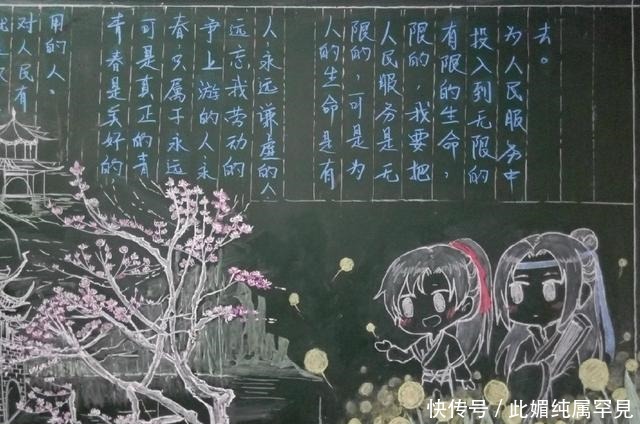 对人民有
用的人。
青春是美好的
可是真正的青
春，只属于永远
争上游的人永
远忘我劳动的
人永远谦虚的人
人的生命是有
限的，可是为
人民服务是无
限的，我要把
有限的生命，
投入到无限的
为人民服务中
去。
快传号／此媚纯属罕見